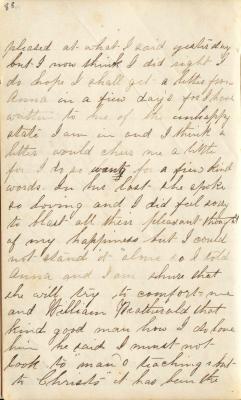 88.
pleased at what I said yesterday
but I now think I did right I
do hope I shall get a letter from
Anna in a few days for I have
written to her of the unhappy
state I am in and I think a
letter would cheer me a little
for I do so want for a few kind
words. In her last she spoke
so loving and I did feel sorry
to blast all their pleasant thoughts
of my happiness but I could
not stand it alone so I told
Anna and I am shure that
she will try to comfort me
and William Weatherald that
kind good man how I do love
him he said I must not
look to "man's teachings but
to Christs" it has been the